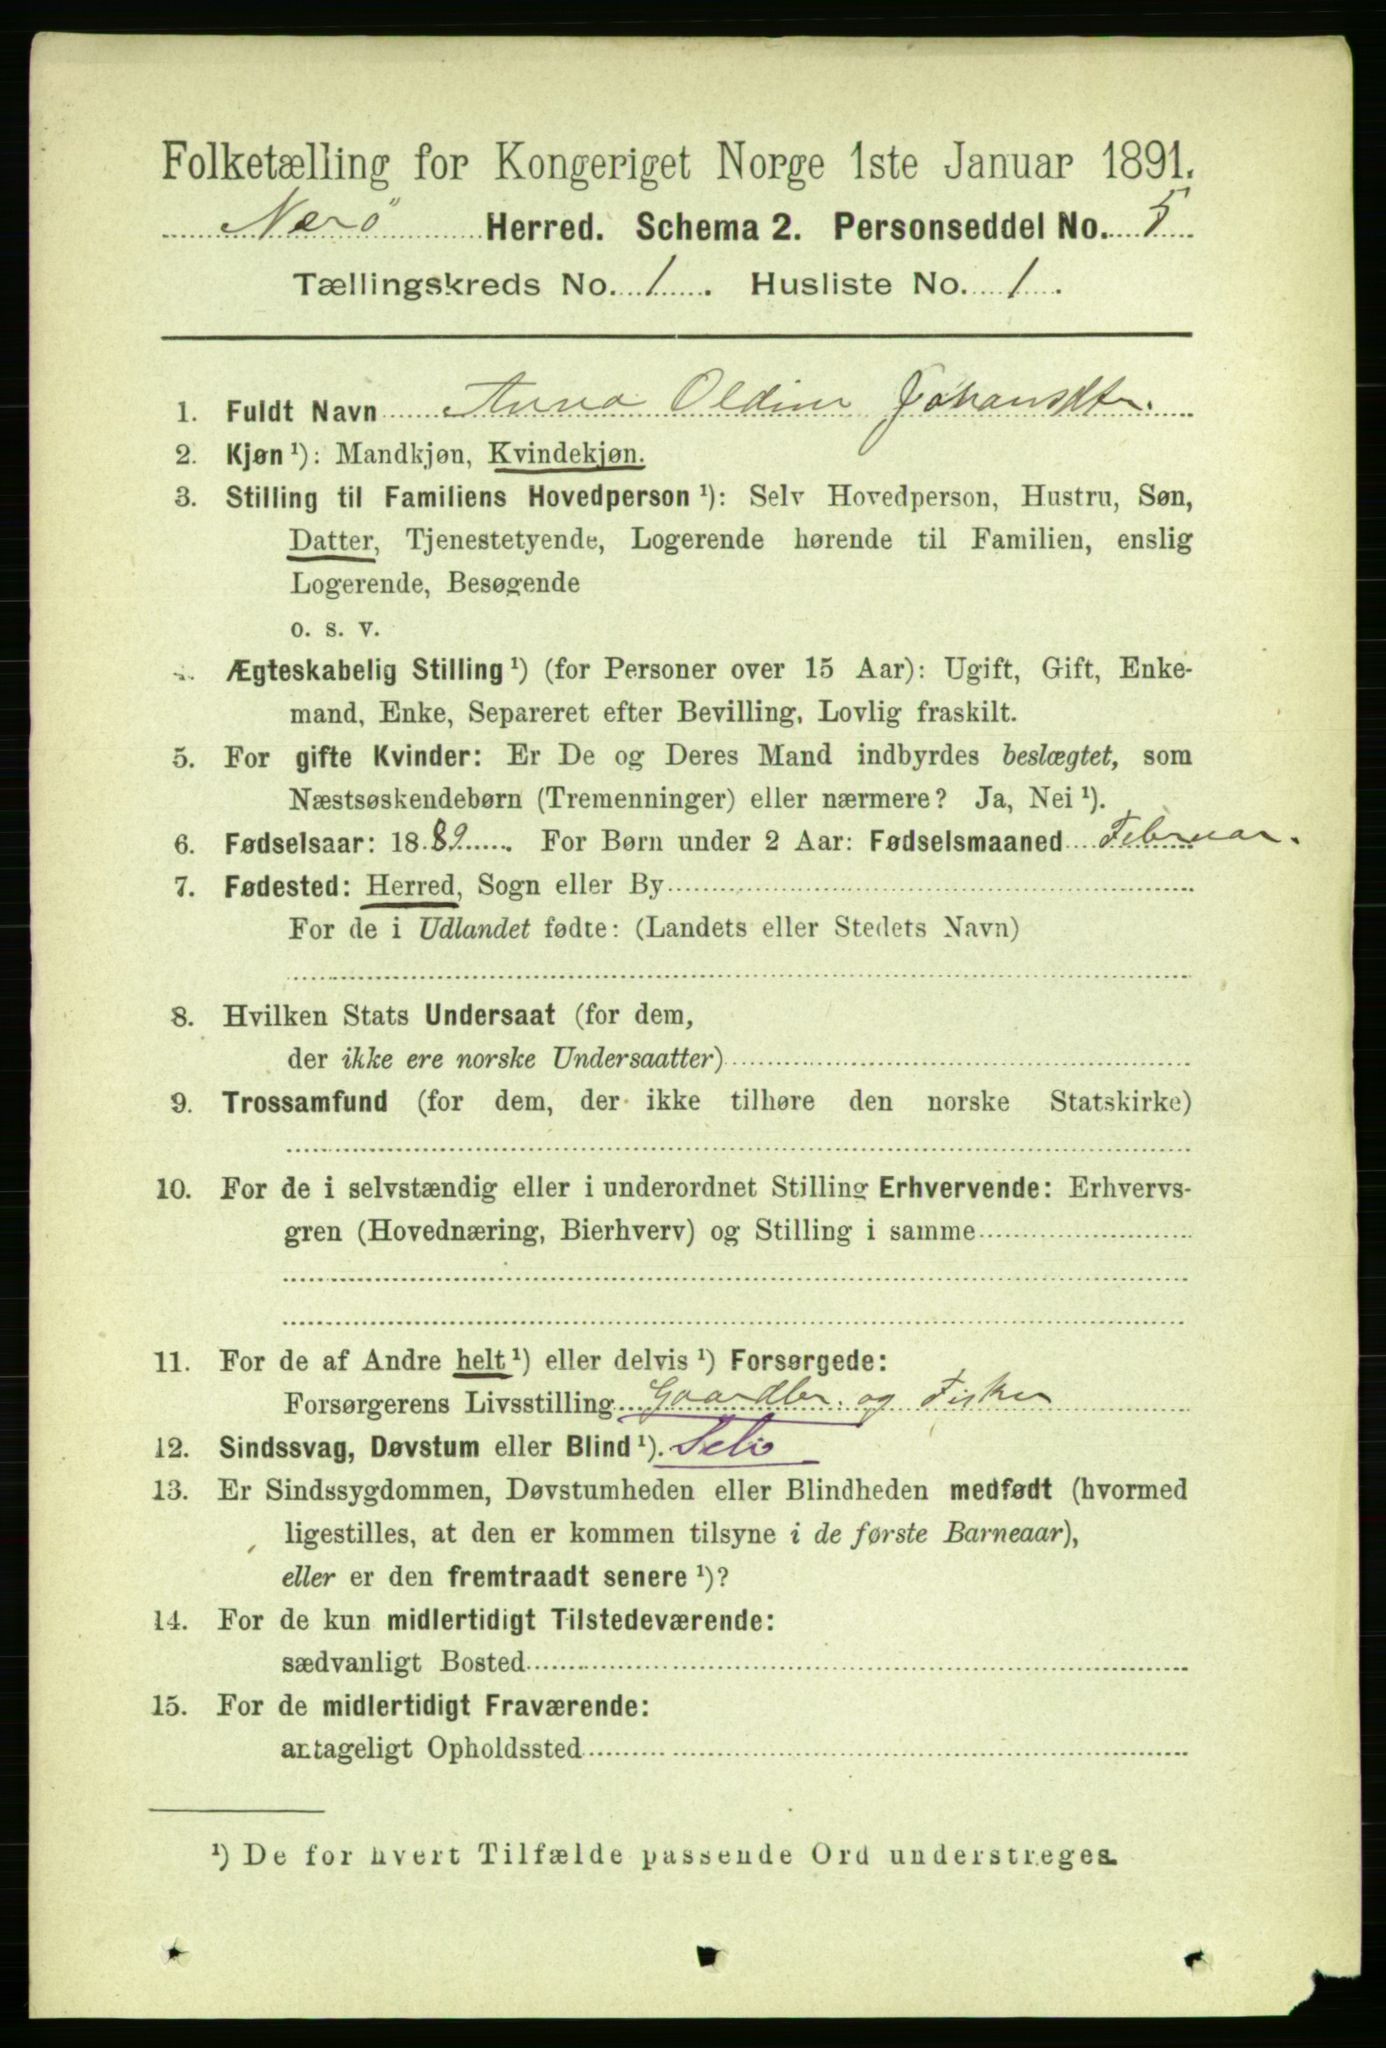 Folketælling for Kongeriget Norge 1ste Januar 1891.
Nærö Herred. Schema 2. Personseddel No. 5
Tællingskreds No. 1. Husliste No. 1.
1. Fuldt Navn Anna Oldine Johansdtr.
2. Kjøn ¹): Mandkjøn, Kvindekjøn.
3. Stilling til Familiens Hovedperson ¹): Selv Hovedperson, Hustru, Søn,
Datter, Tjenestetyende, Logerende hørende til Familien, enslig
Logerende, Besøgende
o. s. v.
Ægteskabelig Stilling ¹) (for Personer over 15 Aar): Ugift, Gift, Enke-
mand, Enke, Separeret efter Bevilling, Lovlig fraskilt.
5. For gifte Kvinder: Er De og Deres Mand indbyrdes beslægtet, som
Næstsøskendebørn (Tremenninger) eller nærmere? Ja, Nei ¹).
6. Fødselsaar: 1889. For Børn under 2 Aar: Fødselsmaaned Februar.
7. Fødested: Herred, Sogn eller By
For de i Udlandet fødte: (Landets eller Stedets Navn)
8. Hvilken Stats Undersaat (for dem,
der ikke ere norske Undersaatter)
9. Trossamfund (for dem, der ikke tilhøre den norske Statskirke)
10. For de i selvstændig eller i underordnet Stilling Erhvervende: Erhvervs-
gren (Hovednæring, Bierhverv) og Stilling i samme
11. For de af Andre helt ¹) eller delvis ¹) Forsørgede:
Forsørgerens Livsstilling Gaardbr. og Fisker
12. Sindssvag, Døvstum eller Blind ¹). Selv
13. Er Sindssygdommen, Døvstumheden eller Blindheden medfødt (hvormed
ligestilles, at den er kommen tilsyne i de første Barneaar),
eller er den fremtraadt senere ¹)?
14. For de kun midlertidigt Tilstedeværende:
sædvanligt Bosted
15. For de midlertidigt Fraværende:
antageligt Opholdssted
¹) De for hvert Tilfælde passende Ord understreges.